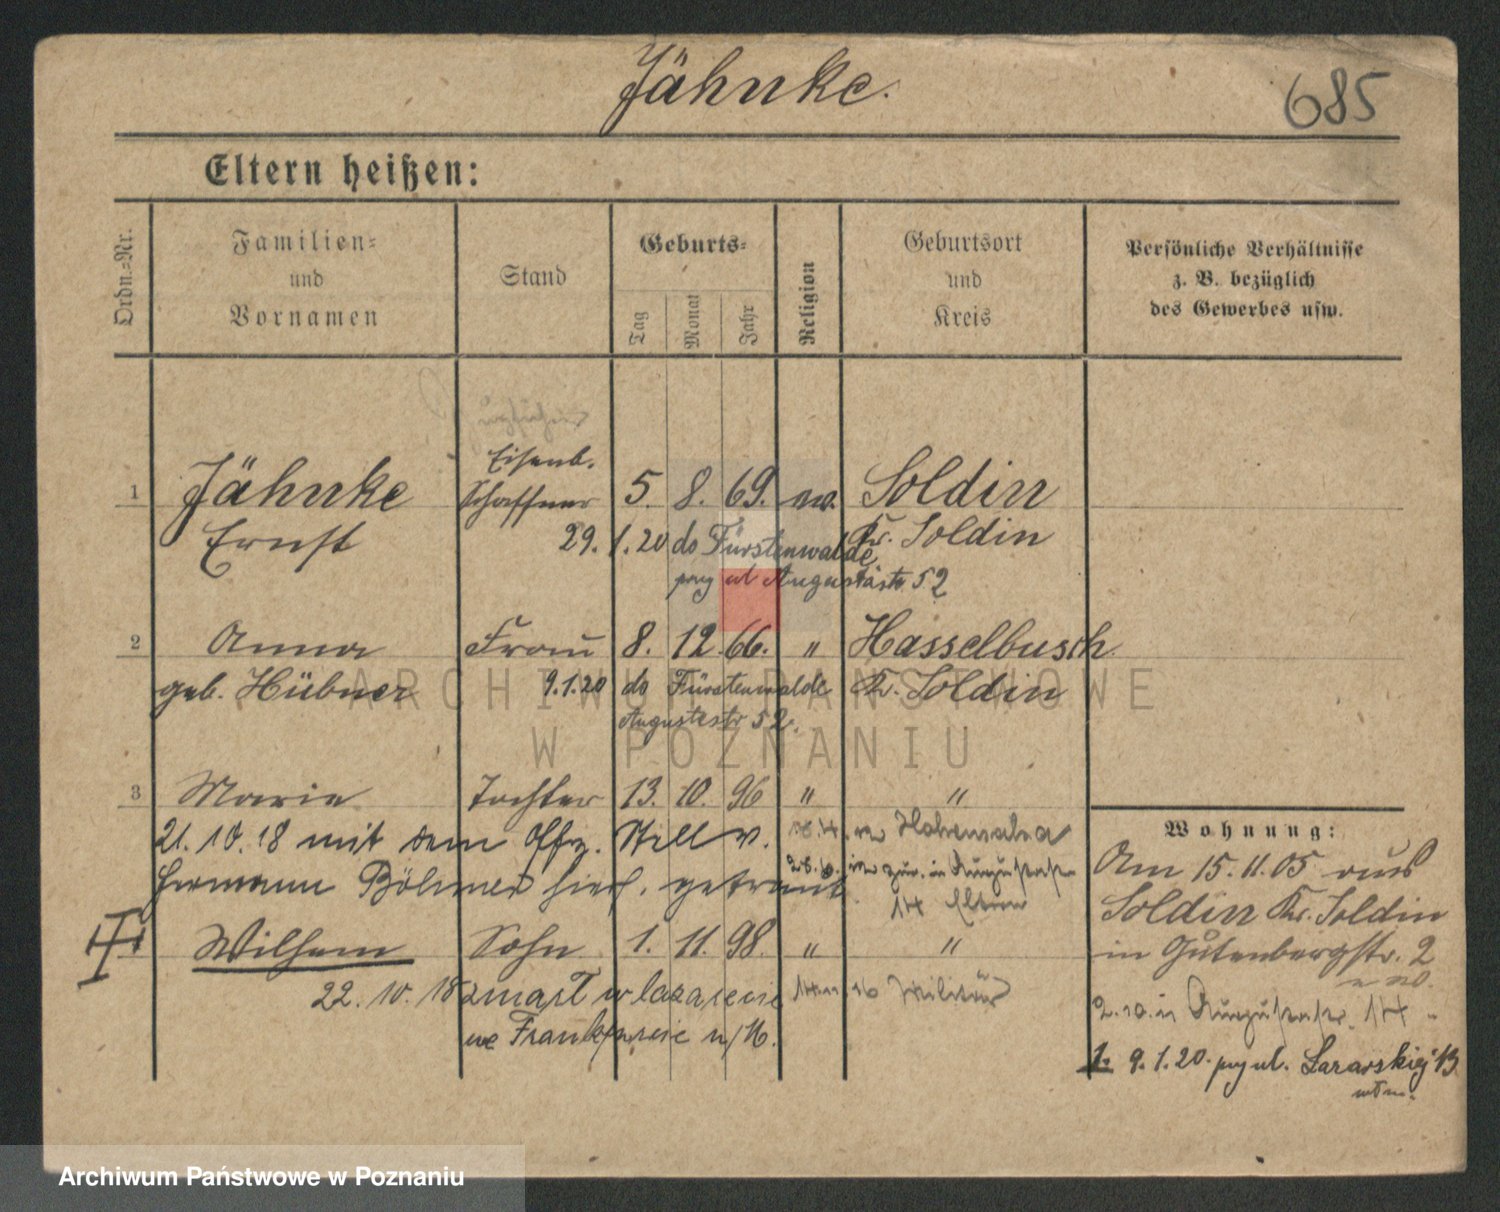 Jähnke.
685
Eltern heißen:
Ordn.=Nr.
Familien=
und
Vornamen
Stand
Geburts=
Tag
Monat
Jahr
Religion
Geburtsort
und
Kreis
Persönliche Verhältnisse
z. B. bezüglich
des Gewerbes usw.
Eisenb.
1 Jähnke Schaffner 5. 8. 69. ev. Soldin
Ernst 29. 1. 20 do Fürstenwalde Kr. Soldin
przy ul Augustastr 52
2 Anna Frau 8. 12. 66. " Hasselbusch
geb. Hübner 9.1.20 do Fürstenwalde Kr. Soldin
Augustestr 52.
3 Marie Tochter 13. 10. 96 " "
21. 10. 18 mit dem Offz. Stell v. Hohensalza
Hermann Böhmer hier, getraut
14 Eltern
Wilhem Sohn 1. 11. 98. " "
22. 10. 18 zmarł w lazarecie Militär
we Frankfurcie n/M.
Wohnung:
Am 15. 11. 05 aus
Soldin Kr. Soldin
in Gutenbergstr. 2
2. 10. in Augustastr. 14
1. 9. 1. 20. przy ul. Łazarskiej 13
ARCHIWUM PAŃSTWOWE
W POZNANIU
Archiwum Państwowe w Poznaniu